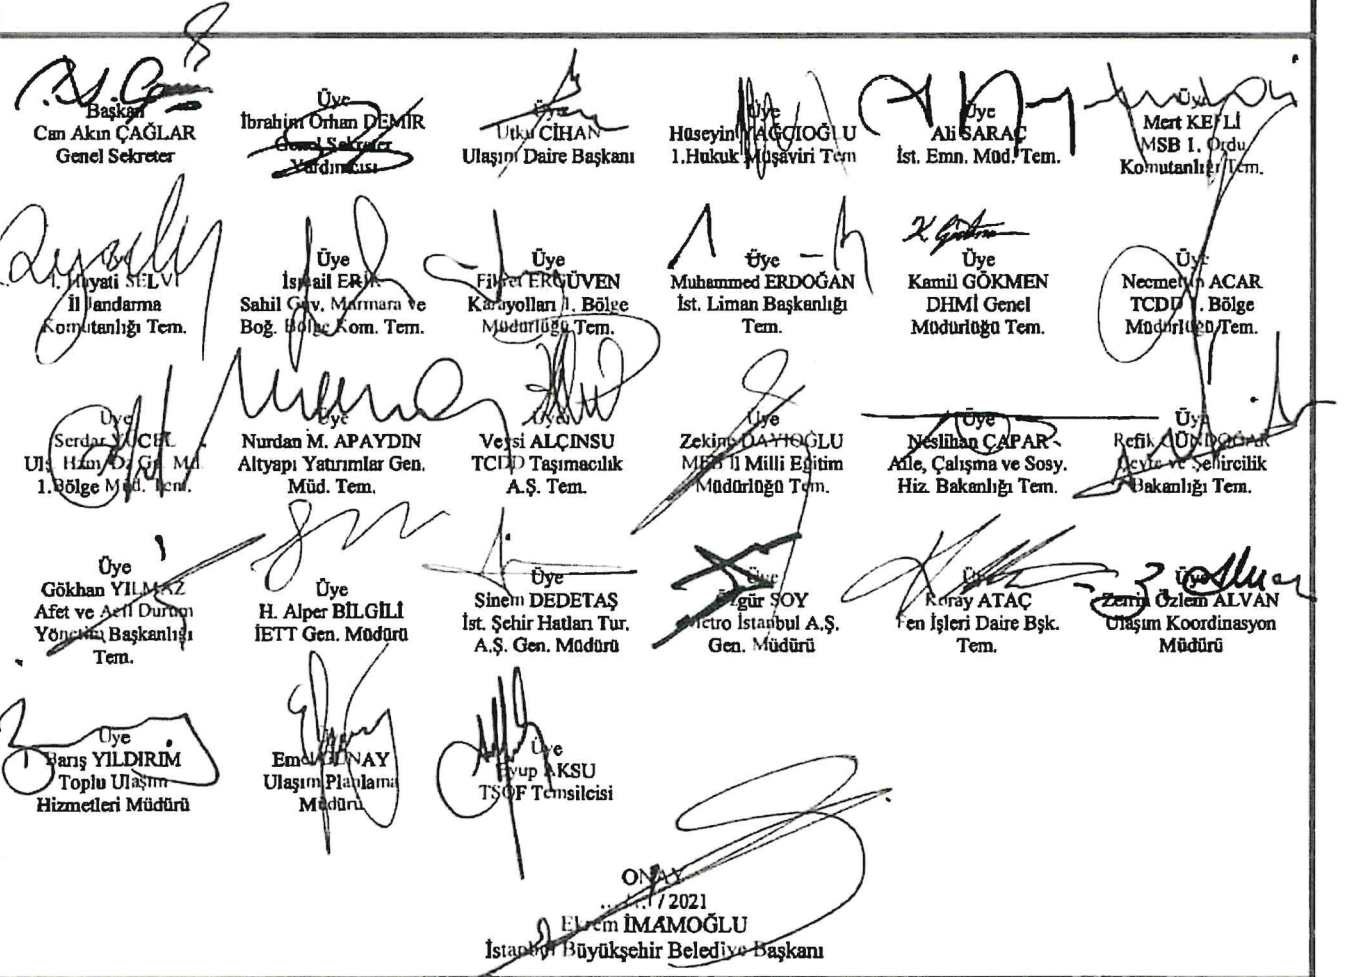 Başkan
Can Akın ÇAĞLAR
Genel Sekreter
Üye
İbrahim Orhan DEMİR
Genel Sekreter
Yardımcısı
Üye
Utku CİHAN
Ulaşım Daire Başkanı
Üye
Hüseyin YAĞCIOĞLU
1.Hukuk Müşaviri Tem
Üye
Ali SARAÇ
İst. Emn. Müd. Tem.
Üye
Mert
MSB 1. Ordu
Komutanlığı Tem.
Hayati SELVİ
İl Jandarma
Komutanlığı Tem.
Üye
İsmail
Sahil Güv. Marmara ve
Boğ. Bölge Kom. Tem.
Üye
Fikret ERGÜVEN
Karayolları 1. Bölge
Müdürlüğü Tem.
Üye
Muhammed ERDOĞAN
İst. Liman Başkanlığı
Tem.
K. Gökmen
Üye
Kamil GÖKMEN
DHMİ Genel
Müdürlüğü Tem.
Üye
Necmettin ACAR
TCDD 1. Bölge
Müdürlüğü Tem.
Üye
Serdar YÜCEL
1.Bölge Müd. Tem.
Üye
Nurdan M. APAYDIN
Altyapı Yatırımlar Gen.
Müd. Tem.
Üye
Veysi ALÇINSU
TCDD Taşımacılık
A.Ş. Tem.
Üye
Zekine DAYIOĞLU
MEB İl Milli Eğitim
Müdürlüğü Tem.
Üye
Neslihan ÇAPAR
Aile, Çalışma ve Sosy.
Hiz. Bakanlığı Tem.
Üye
Refik GÜNDOĞAR
Çevre ve Şehircilik
Bakanlığı Tem.
Üye
Gökhan YILMAZ
Afet ve Acil Durum
Yönetim Başkanlığı
Tem.
Üye
H. Alper BİLGİLİ
İETT Gen. Müdürü
Üye
Sinem DEDETAŞ
İst. Şehir Hatları Tur.
A.Ş. Gen. Müdürü
Üye
Özgür SOY
Metro İstanbul A.Ş.
Gen. Müdürü
Üye
Koray ATAÇ
Fen İşleri Daire Bşk.
Tem.
Üye
Zerrin Özlem ALVAN
Ulaşım Koordinasyon
Müdürü
Üye
Barış YILDIRIM
Toplu Ulaşım
Hizmetleri Müdürü
Üye
Ulaşım Planlama
Müdürü
Üye
Eyup AKSU
TŞOF Temsilcisi
ONAY
/ 2021
Ekrem İMAMOĞLU
İstanbul Büyükşehir Belediye Başkanı